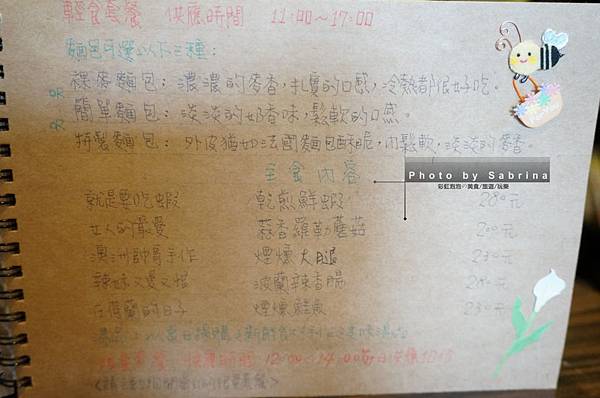 輕食套餐 供應時間 11:00～17:00
麵包可選以下三種：
裸麥麵包：濃濃的麥香，扎實的口感，冷熱都很好吃。
簡單麵包：淡淡的奶香味，鬆軟的口感。
特製麵包：外皮猶如法國麵包酥脆，內鬆軟，淡淡的麥香。
主食內容
Photo by Sabrina
彩虹泡泡の美食/旅遊/玩樂
就是要吃蝦 乾煎鮮蝦 280元
女人的最愛 蒜香羅勒蘑菇 200元
澳洲帥哥手作 煙燻火腿 230元
辣妹又愛又恨 波蘭辣香腸 280元
在荷蘭的日子 煙燻鮭魚 230元
供應時間 12:00～14:00 每日供應10份